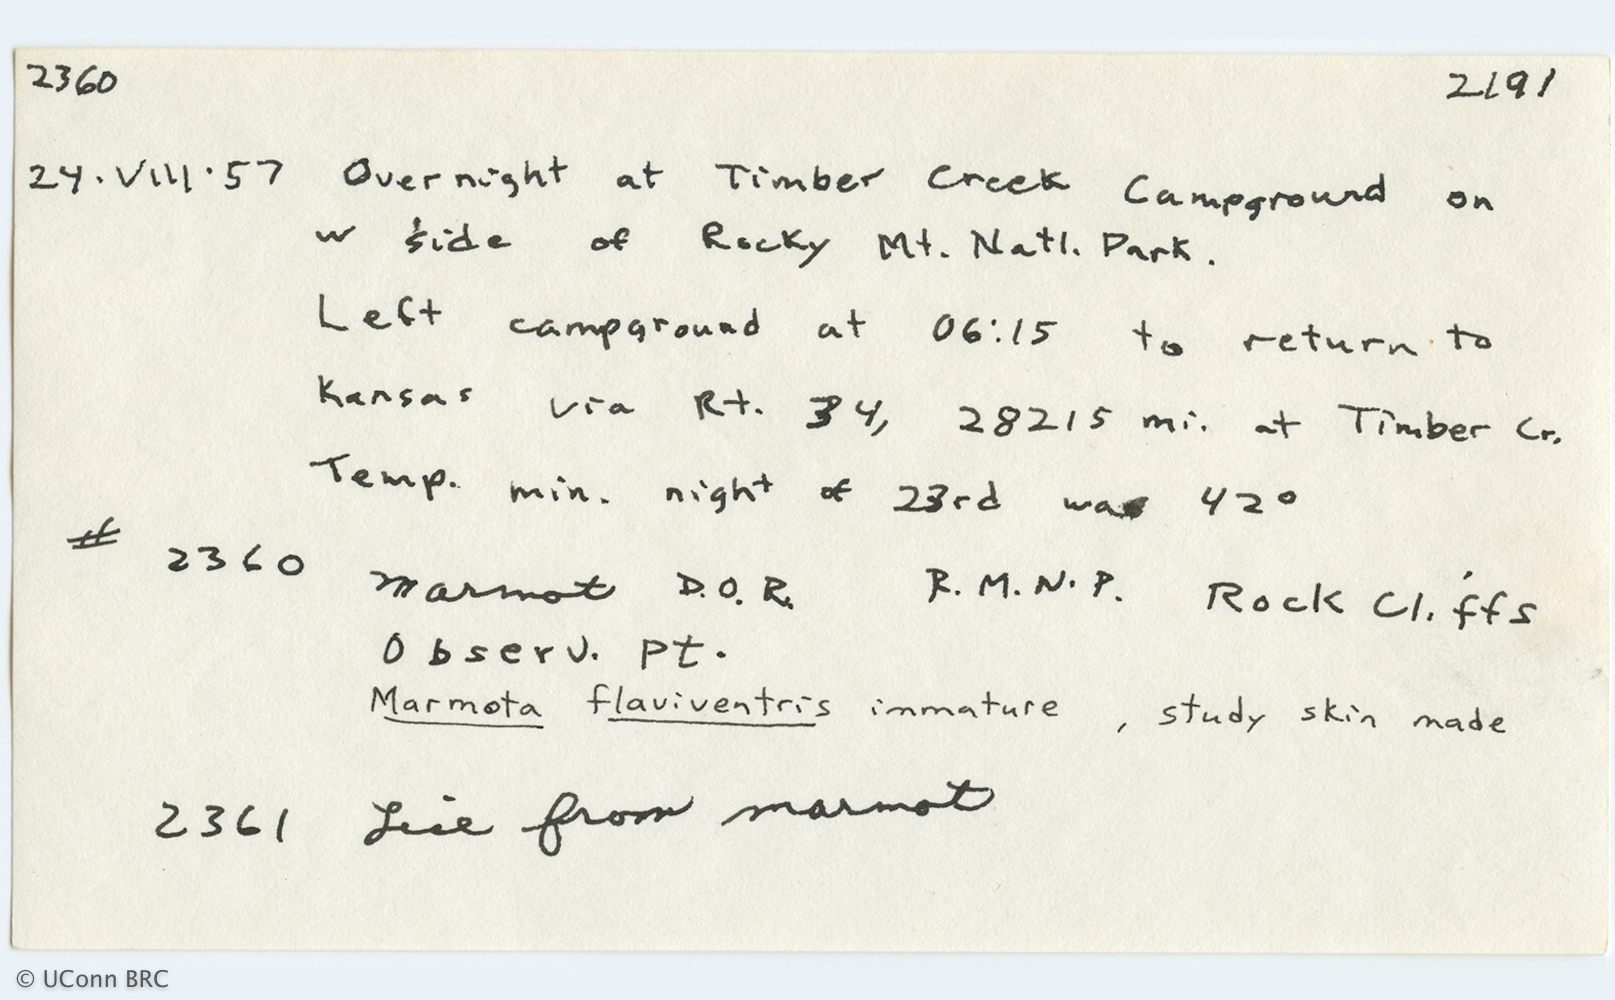 2360 2191
24.VIII.57 Overnight at Timber Creek Campground on
w side of Rocky Mt. Natl. Park.
Left campground at 06:15 to return to
Kansas via Rt. 34, 28215 mi. at Timber Cr.
Temp. min. night of 23rd was 42°
# 2360 Marmot D.O.R. R.M.N.P. Rock Cliffs
Observ. pt.
Marmota flaviventris immature, study skin made
2361 Lice from marmot
© UConn BRC